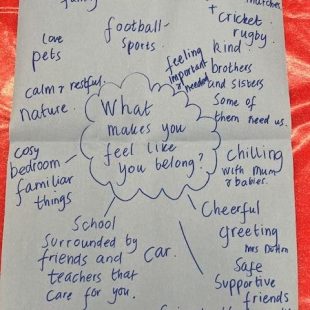 family
football-
sports.
matches
+ cricket
rugby.
love
pets
feeling
important
& needed
kind
brothers
and sisters
Some of
them need us.
calm & restful.
nature.
What
makes you
feel like
you belong?
cosy
bedroom
familiar
things
chilling
with mum
& babies.
School
Surrounded by
friends and
teachers that
care for you.
car.
Cheerful
greeting
Safe
Supportive
friends